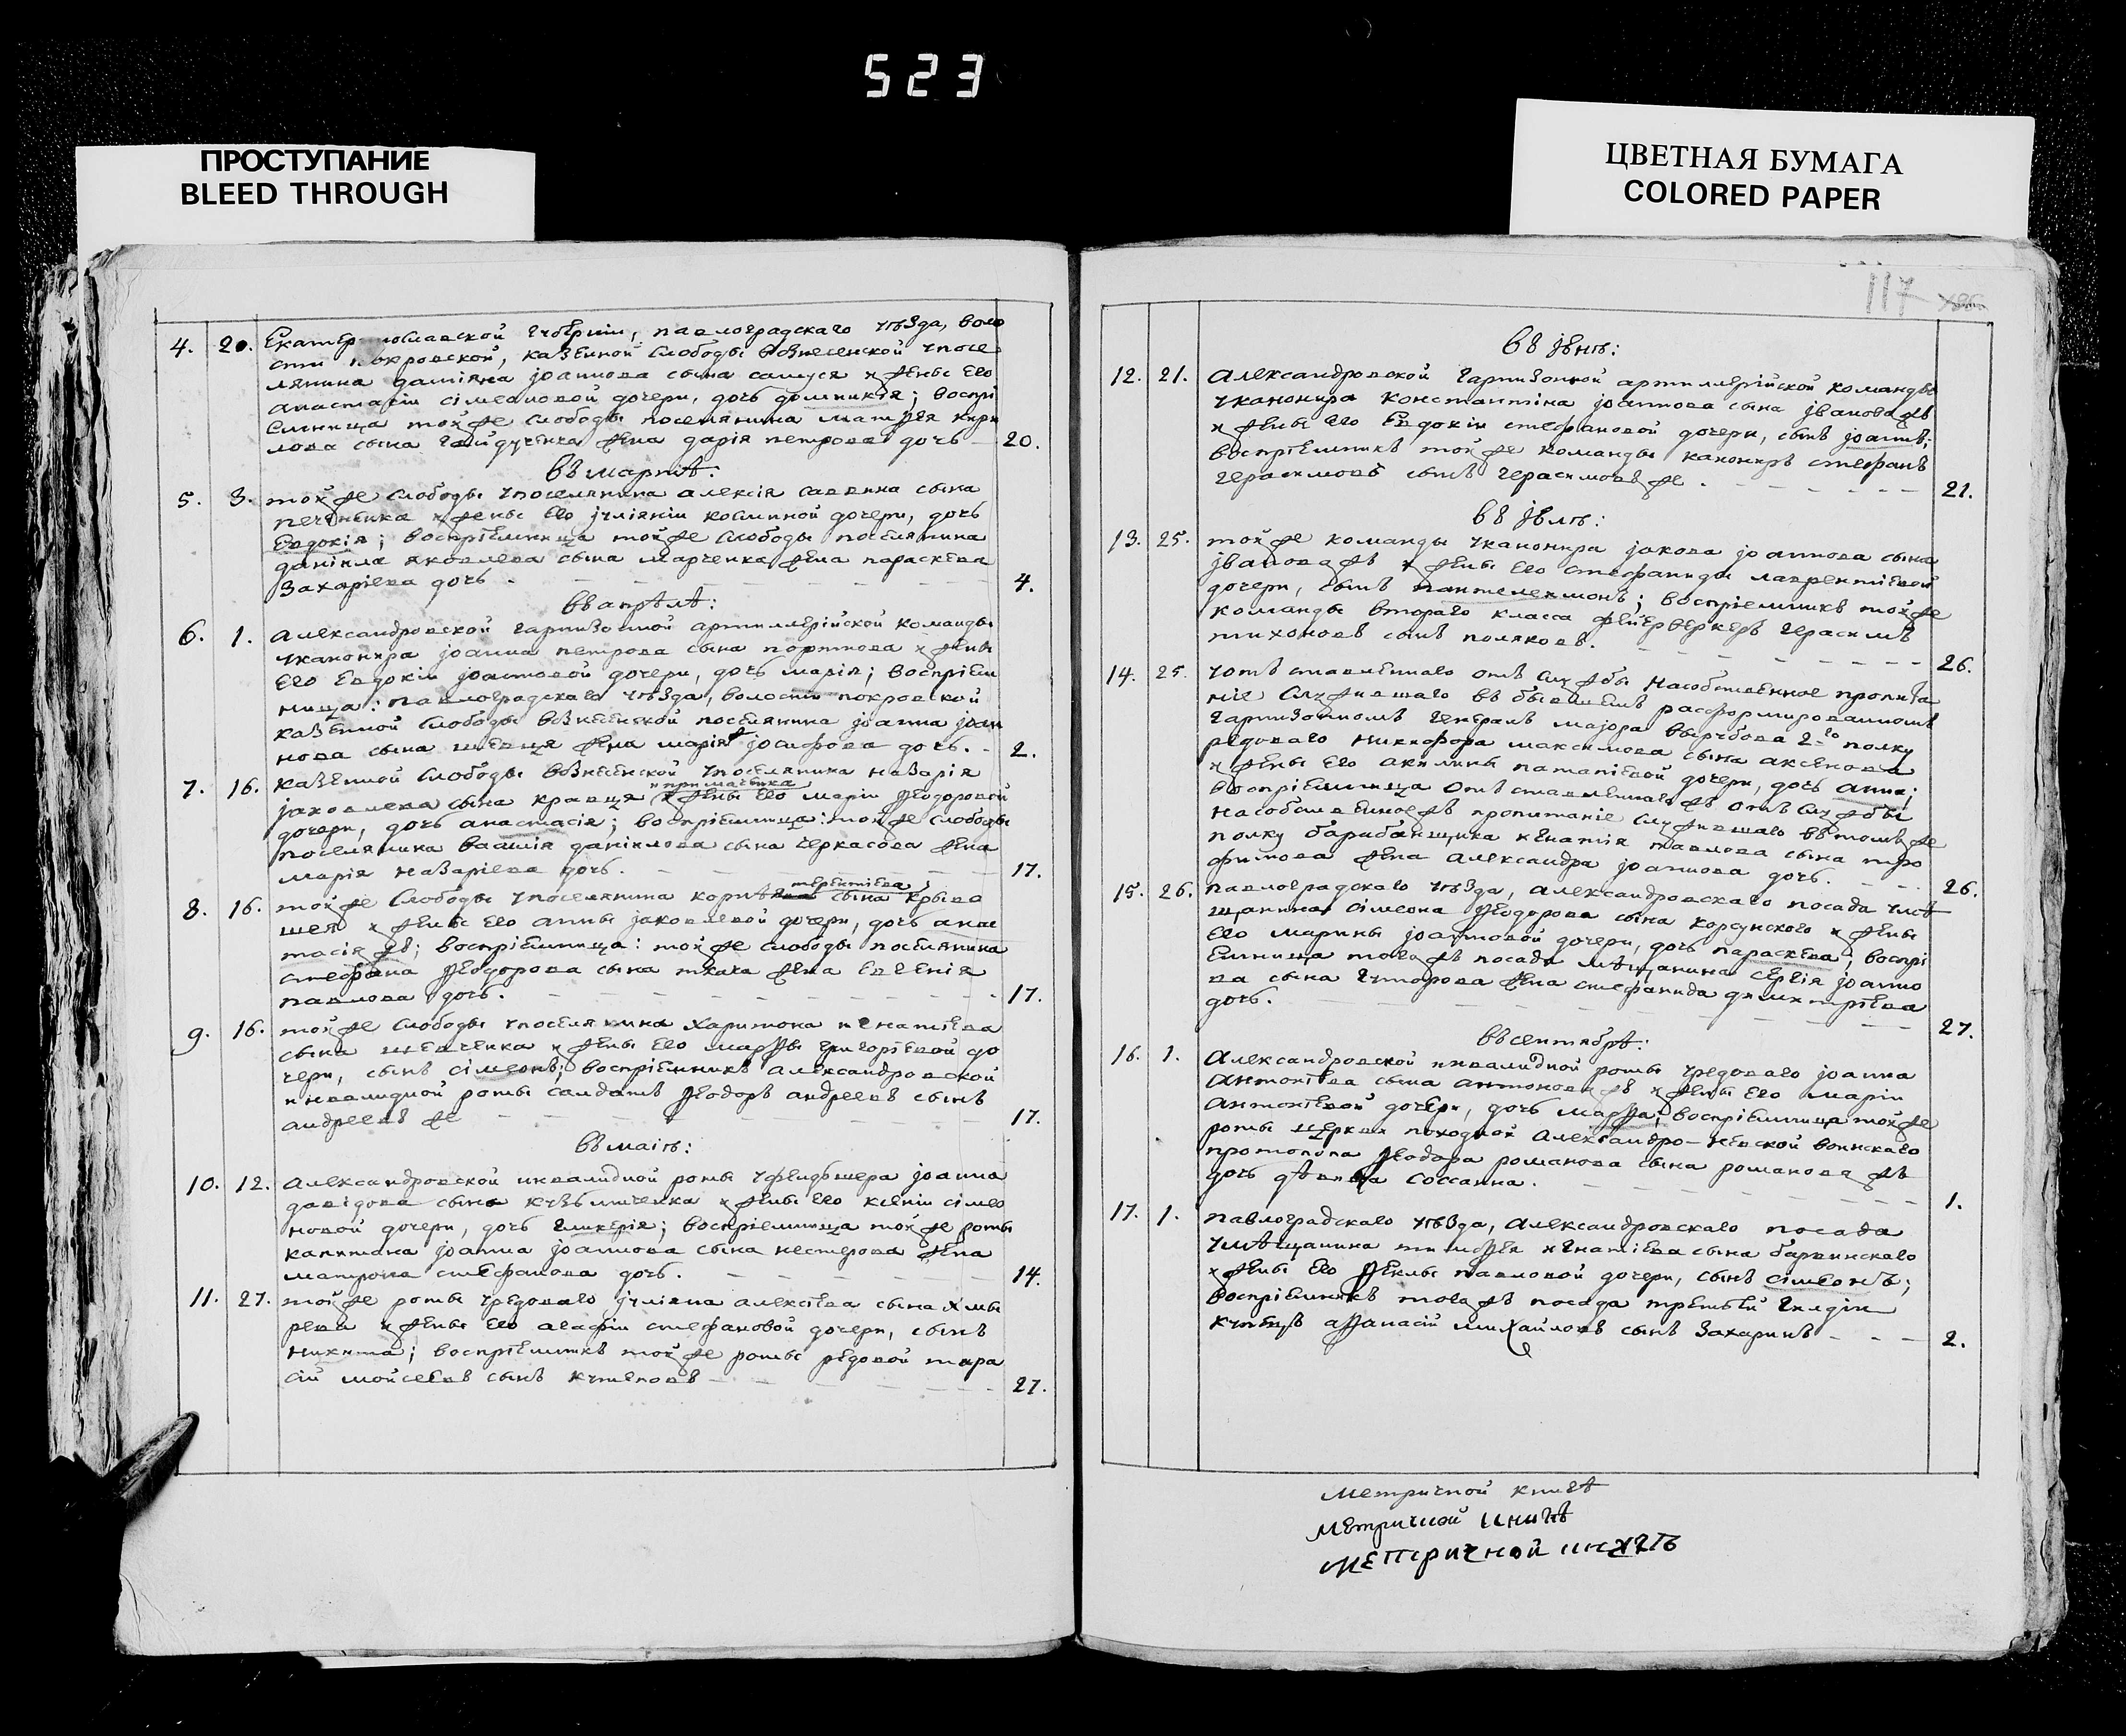 523
ПРОСТУПАНИЕ
BLEED THROUGH
ЦВЕТНАЯ БУМАГА
COLORED PAPER
4. 20. Екатеринославской губерніи, павлоградскаго уѣзда, воло
сти покровской, казенной слободы вознесенской упосе
лянина даміяна јоаннова сына самуся и жены его
анастасіи сімеоновой дочери, дочь домникія; воспрі
емница той же слободы поселянина матѳея кири
лова сына гайдученка жена дарія петрова дочь - 20.
въ мартѣ:
5. 3. той же слободы упоселянина алексія саввина сына
печенека и жены его јуліяніи косминой дочери, дочь
Евдокія; воспріемница той же слободы поселянина
даніила яковлева сына марченка жена параскева
Захаріева дочь. 4.
въ апрѣлѣ:
6. 1. Александровской гарнизонной артиллерійской команды
уканонира јоанна петрова сына портнова и жены
его Евдокіи јоанновой дочери, дочь марія; воспріем
ница: павлоградскаго уѣзда, волости покровской
казенной слободы вознесенской поселянина јоанна јоан
нова сына шевця жена марія јосифова дочь. - 2.
7. 16. казенной слободы вознесенской упоселянина назарія
јаковлева сына кравця и примаченка и жены его маріи ѳеодоровой
дочери, дочь анастасія; воспріемница: той же слободы
поселянина василія даніилова сына черкасова жена
марія назаріева дочь. 17.
8. 16. той же слободы упоселянина корнѣя терентіева сына крыво
шея и жены его анны јаковлевой дочери, дочь анас
тасія жъ; воспріемница: той же слободы поселянина
стефана ѳеодорова сына ткача жена евгенія
павлова дочь. 17.
9. 16. той же слободы упоселянина харитона игнатіева
сына шевченка и жены его марѳы григоріевой до
чери, сынъ сімеонъ; воспріемникъ александровской
инвалидной роты салдатъ ѳеодоръ андреевъ сынъ
андреевъ же 17.
въ маіѣ:
10. 12. Александровской инвалидной роты уфелдъшера јоанна
давідова сына кузьмиченка и жены его ксеніи сімео
новой дочери, дочь гликерія; воспріемница той же роты
капитана јоанна јоаннова сына нестерова жена
матрона стефанова дочь. 14.
11. 27. той же роты урядоваго јуліяна алексіева сына хмы
рева и жены его агафіи стефановой дочери, сынъ
никита; воспріемникъ той же роты рядовой тара
сій мойсеевъ сынъ кутеповъ 27.
117
въ јюнѣ:
12. 21. Александровской гарнизонной артиллерійской команды
уканонира константіна јоаннова сына јванова жъ
и жены его Евдокіи стефановой дочери, сынъ јоаннъ;
воспріемникъ той же команды канониръ стефанъ
герасимовъ сынъ герасимовъ же. 21.
въ јюлѣ:
13. 25. той же команды уканонира јакова јоаннова сына
јванова жъ и жены его стефаниды лаврентіевой
дочери, сынъ пантелеимонъ; воспріемникъ той же
команды втораго класса фейерверкеръ герасимъ
тихоновъ сынъ поляковъ. 26.
14. 25. уотъставленнаго отъ службы на собственное пропита
ніе служившаго въ бывшемъ расформированномъ
гарнизонномъ генералъ маіора вырубова 2го полку
рядоваго никифора максимова сына аксенова
и жены его акилины патапіевой дочери, дочь анна;
воспріемница отъставленнаго жъ отъ службы
на собственное жъ пропитаніе служившаго въ томъ же
полку барабанщика игнатія павлова сына тро
фимова жена александра јоаннова дочь. 26.
15. 26. павлоградскаго уѣзда, александровскаго посада умѣ
щанина сімеона ѳеодорова сына корсунского и жены
его марины јоанновой дочери, дочь параскева; воспрі
емница того жъ посада мѣщанина сергія јоанно
ва сына гуторова жена стефанида димитріева
дочь. 27.
въ сентябрѣ:
16. 1. Александровской инвалидной роты урядоваго јоанна
антоніева сына антонова жъ и жены его маріи
антоніевой дочери, дочь марѳа; воспріемница той же
роты церкви походной александро-невской воинскаго
протопопа ѳеодора романова сына романова жъ
дочь дѣвица соссанна. 1.
17. 1. павлоградскаго уѣзда, Александровскаго посада
умѣщанина тимоѳея игнатіева сына барвинскаго
и жены его ѳеклы павловой дочери, сынъ сімеонъ;
воспріемникъ того жъ посада третьей гилдіи
купецъ аѳанасій михайловъ сынъ Захаринъ - - - 2.
метричной книгѣ
метричной книгѣ
метричной книгѣ